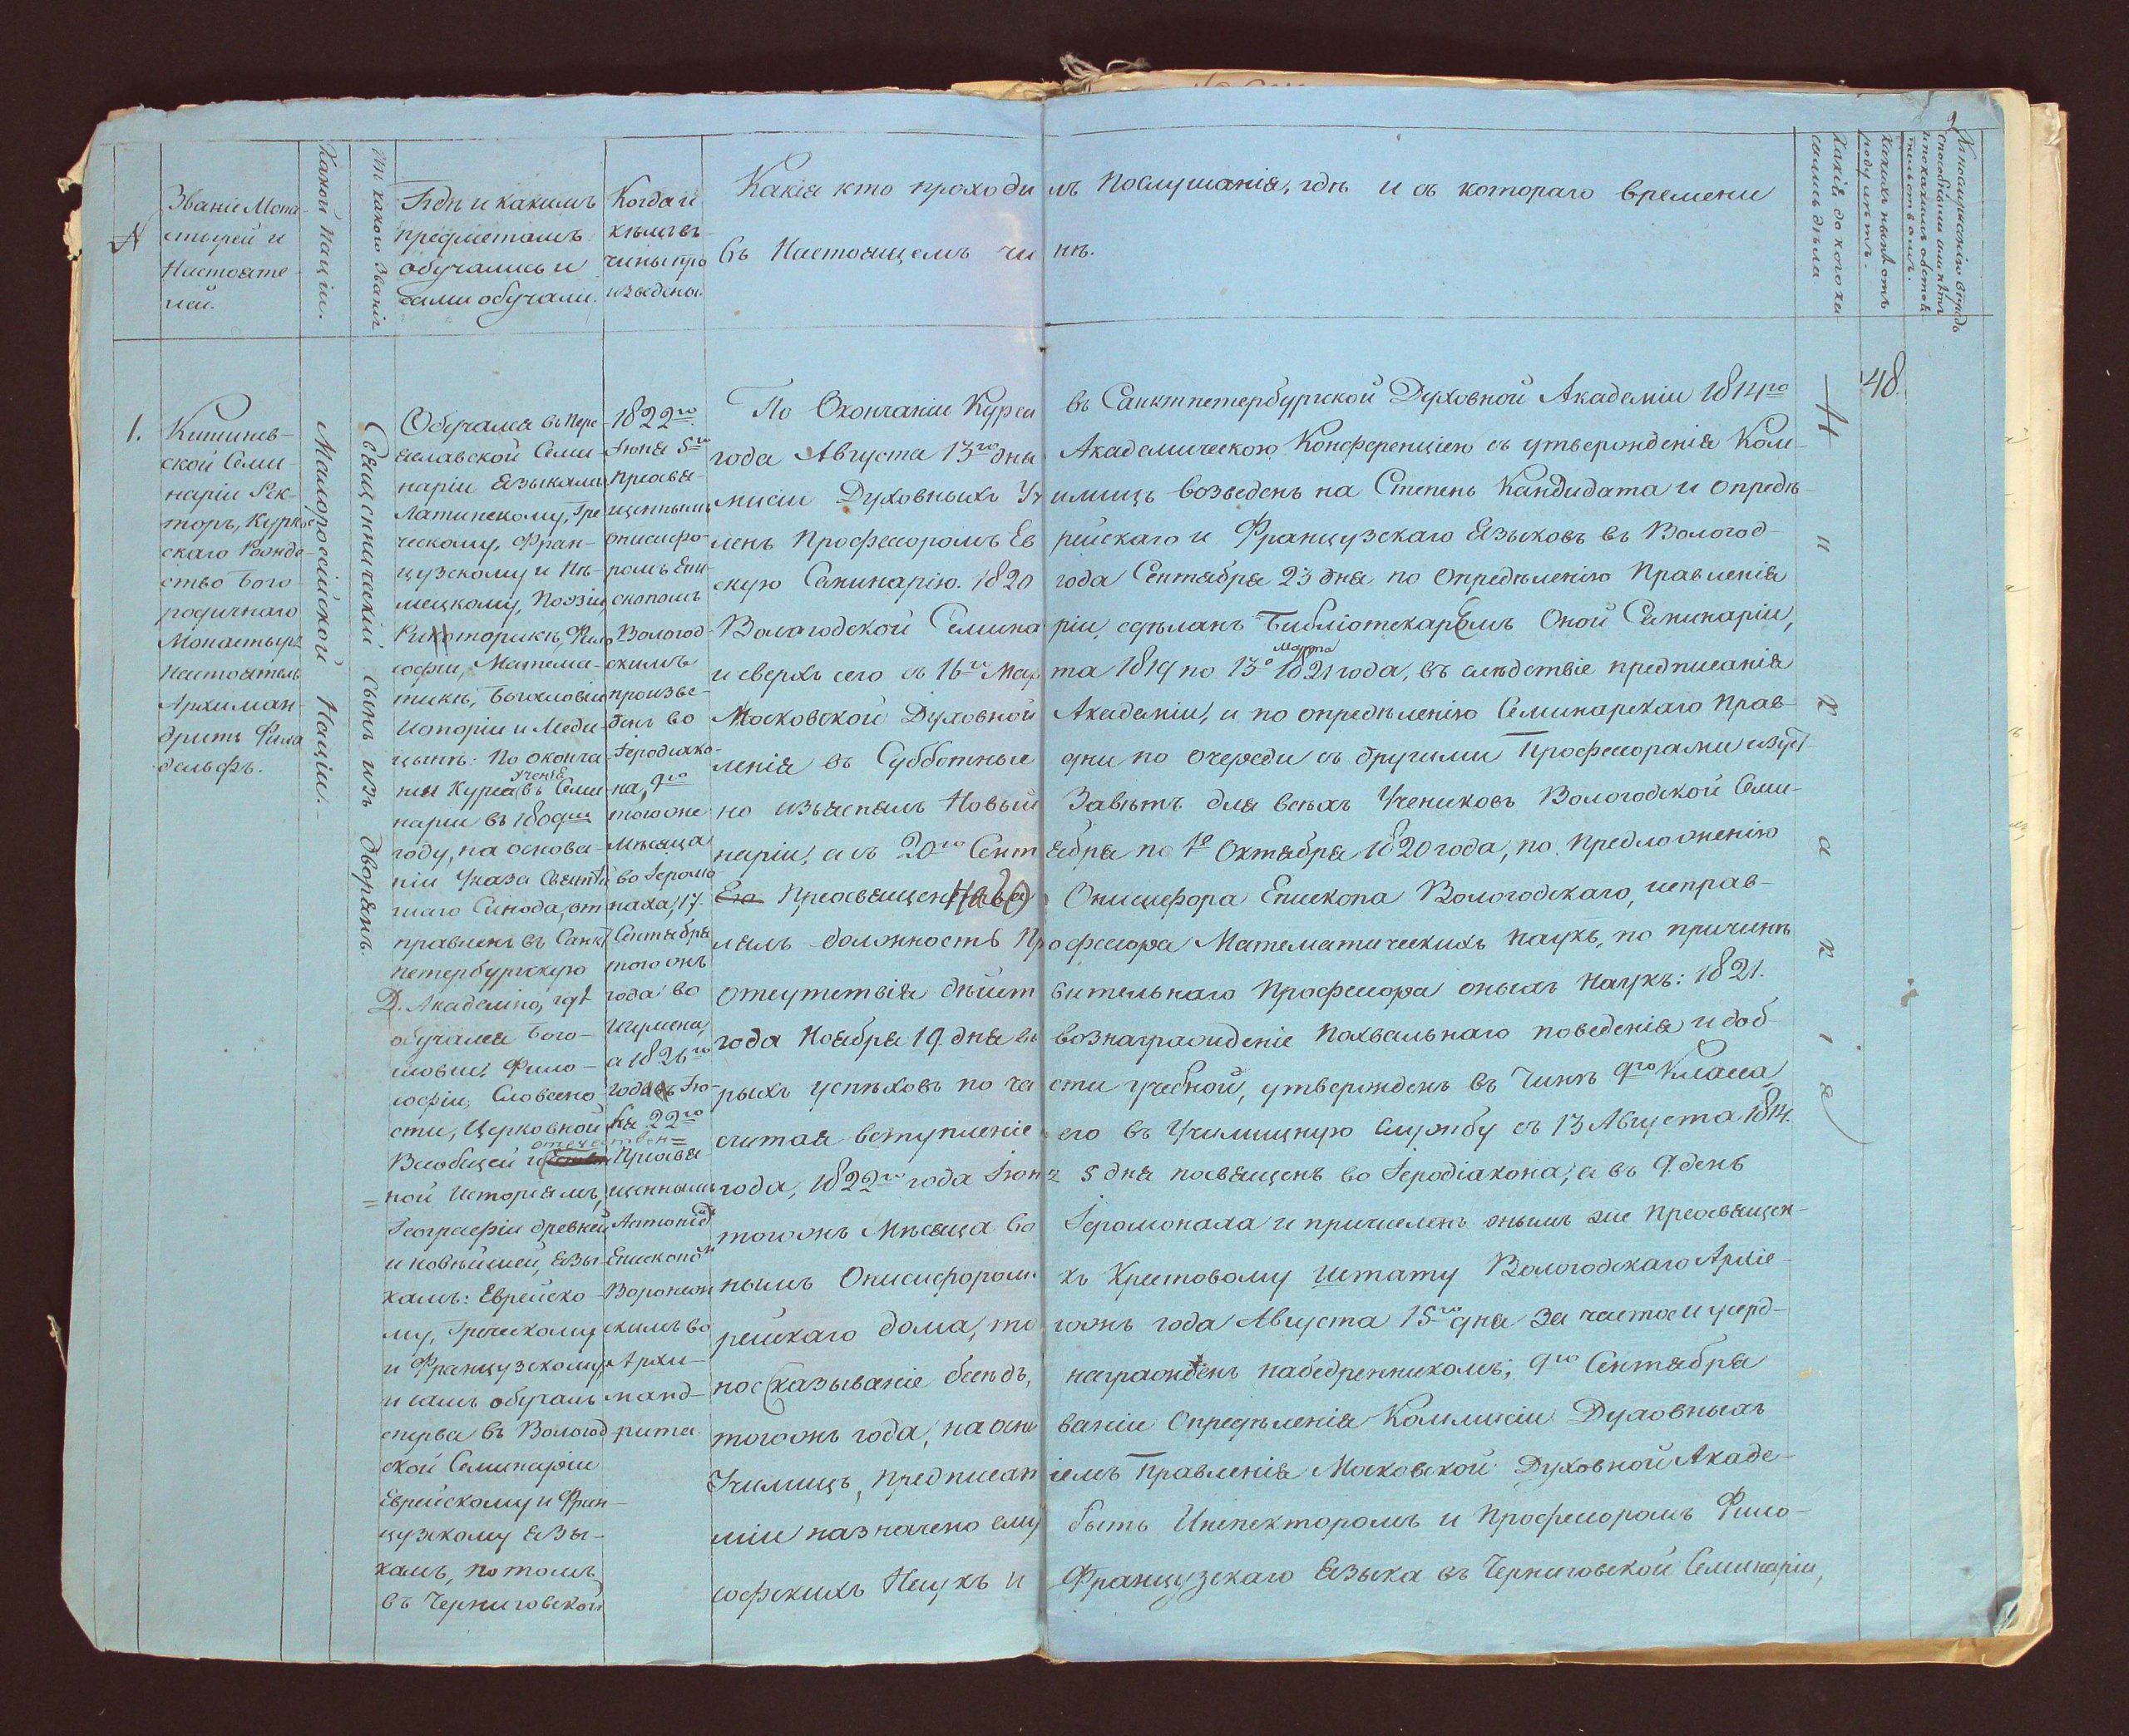 №
Званіе Мона-
стырей и
Настояте-
лей.
Какой Націи.
Изъ какого званія
Гдѣ и какимъ
предметамъ
обучались и
сами обучали.
Когда и
кѣмъ въ
чины про
изведены.
Какія кто проходилъ Послушанія, гдѣ и съ котораго времени
въ Настоящемъ чинѣ.
Какія до кого ка-
сались дѣла
Кихъ нынѣ отъ
роду лѣтъ.
1.
Кишинев-
ской Семи-
наріи Рек-
торъ, Курков-
скаго Рожде-
ство Бого-
родичнаго
Монастыря
Настоятель
Архиман-
дритъ Фила
дельфъ.
Малороссійской Націи.
Священническій сынъ изъ дворянъ.
Обучался въ Пере-
яславской Семи-
наріи Языкамъ
Латинскому, Гре
ческому, Фран-
цузскому и Нѣ-
мецкому, Поэзіи,
Риторикѣ, Фило
софіи, Матема-
тикѣ, Богословіи
Исторіи и Меди-
цынѣ: По оконча
ніи Курса ученія въ Семи
наріи въ 1809мъ
году, на основа-
ніи Указа Святѣй
шаго Синода, от
правленъ въ Санкт
петербургскую
Д. Академію, гдѣ
обучался Бого-
словіи, Фило-
софіи, Словесно-
сти, Церковной
Всеобщей и отечествен=
=ной Исторіямъ,
Географіи древней
и новѣйшей, язы-
камъ: Еврейско
му, Греческому
и Французскому,
и самъ обучалъ
сперва въ Вологод
ской Семинаріи
Еврейскому и Фран-
цузскому язы-
камъ, потомъ
въ Черниговской
1822го
Іюня 5го
Преосвя-
щеннымъ
Онисифо-
ромъ Епи-
скопомъ
Вологод-
скимъ
произве-
денъ во
Іеродіако-
на, 9го
того же
Мѣсяца
во Іеромо
наха, 17.
Сентября
того жъ
года во
Игумена,
а 1826го
года Ію-
ля 22го
Преосвя
щеннымъ
Антоніемъ
Епископомъ
Воронеж
скимъ во
Архи-
манд-
рита.
По Окончаніи Курса въ Санктпетербургской Духовной Академіи 1814го
года Августа 13го дня Академическою Конференціею съ утвержденія Ком-
мисіи Духовныхъ Училищъ возведенъ на Степень Кандидата и опредѣ-
ленъ Профессоромъ Еврейскаго и Французскаго Языковъ въ Вологод-
скую Семинарію. 1820 года Сентября 23 дня по Опредѣленію Правленія
Вологодской Семинаріи, сдѣланъ Библіотекаремъ Оной Семинаріи,
и сверхъ сего съ 16го Марта 1819 по 13е Марта 1821 года, въ слѣдствіе предписанія
Московской Духовной Академіи, и по опредѣленію Семинарскаго Прав-
ленія въ Субботные дни по очереди съ другими Профессорами изуст-
но изъяснялъ Новый Завѣтъ для всѣхъ Учениковъ Вологодской Семи-
наріи, а съ 20го Сентября по 1е Октября 1820 года, по Предложенію
Его Преосвященства Онисифора Епископа Вологодскаго, исправ-
лялъ должность Профессора Математическихъ Наукъ, по причинѣ
отсутствія дѣйствительнаго Профессора оныхъ Наукъ: 1821.
года Ноября 19 дня въ вознагражденіе похвальнаго поведенія и доб
рыхъ успѣховъ по части учебной, утвержденъ въ Чинѣ 9го Класса
считая вступленіе его въ Училищную службу съ 13 Августа 1814.
года, 1822го года Іюня 5 дня посвященъ во Іеродіакона, а въ 9. день
того жъ Мѣсяца во Іеромонаха и причисленъ онымъ же Преосвящен-
нымъ Онисифоромъ къ Крестовому Штату Вологодскаго Архіе-
рейскаго дома, того жъ года Августа 15го дня за частое и усерд-
ное сказываніе бесѣдъ, награжденъ набедренникомъ; 9го Сентября
того жъ года, на основаніи Опредѣленія Коммисіи Духовныхъ
Училищъ, предписаніемъ Правленія Московской Духовной Акаде-
міи назначено ему быть Инспекторомъ и Профессоромъ Фило-
софскихъ Наукъ и Французскаго Языка въ Черниговской Семинаріи,
Ни карания
48.